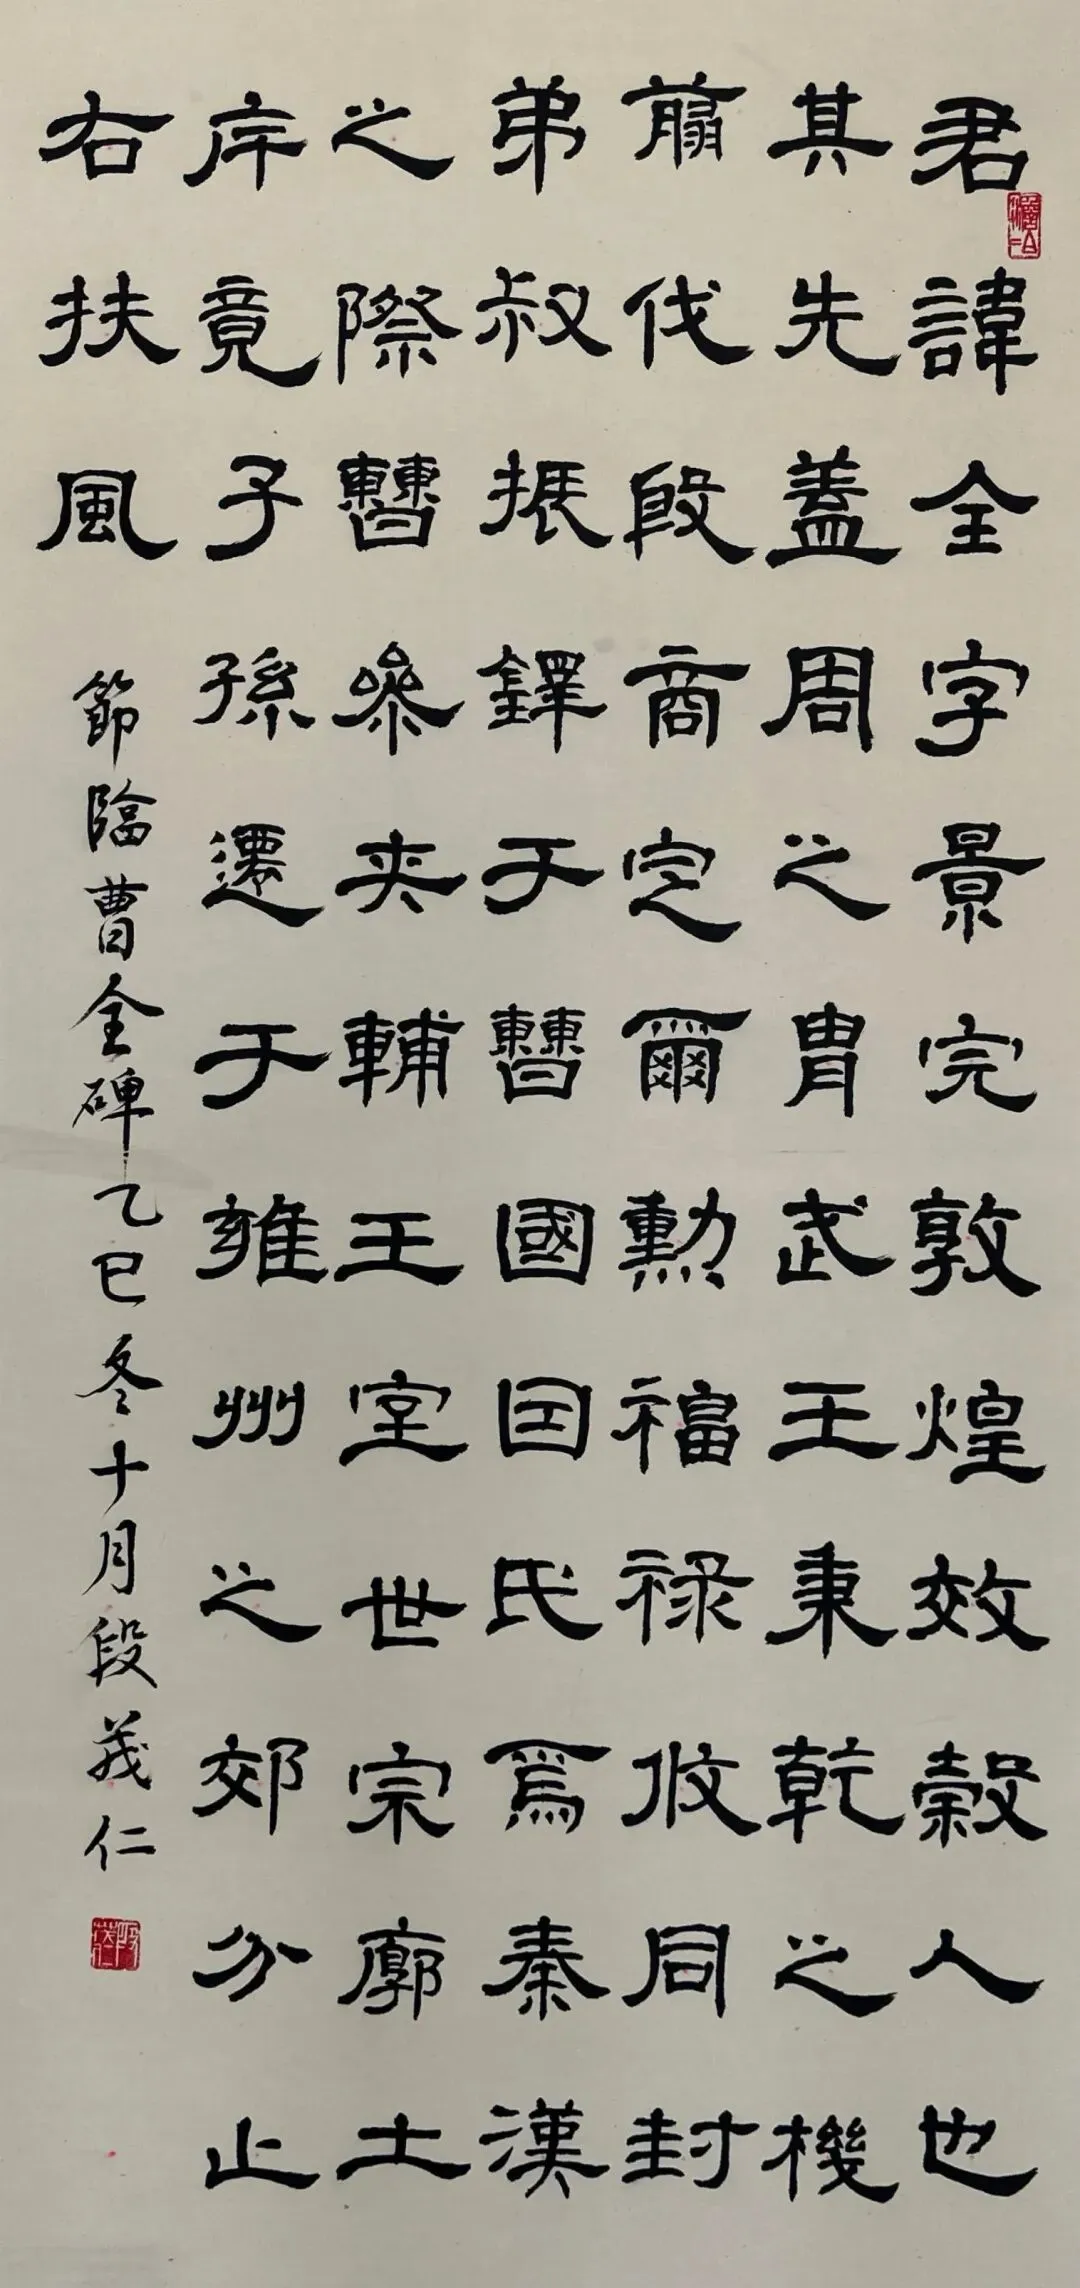 君諱全字景完敦煌效穀人也
其先蓋周之胄武王秉乾之機
翦伐殷商定爾勳福禄攸同封
弟叔振鐸于曹國因氏焉秦漢
之際曹參夾輔王室世宗廓土
斥竟子孫遷于雍州之郊分止
右扶風
節臨曹全碑乙巳冬十月段義仁